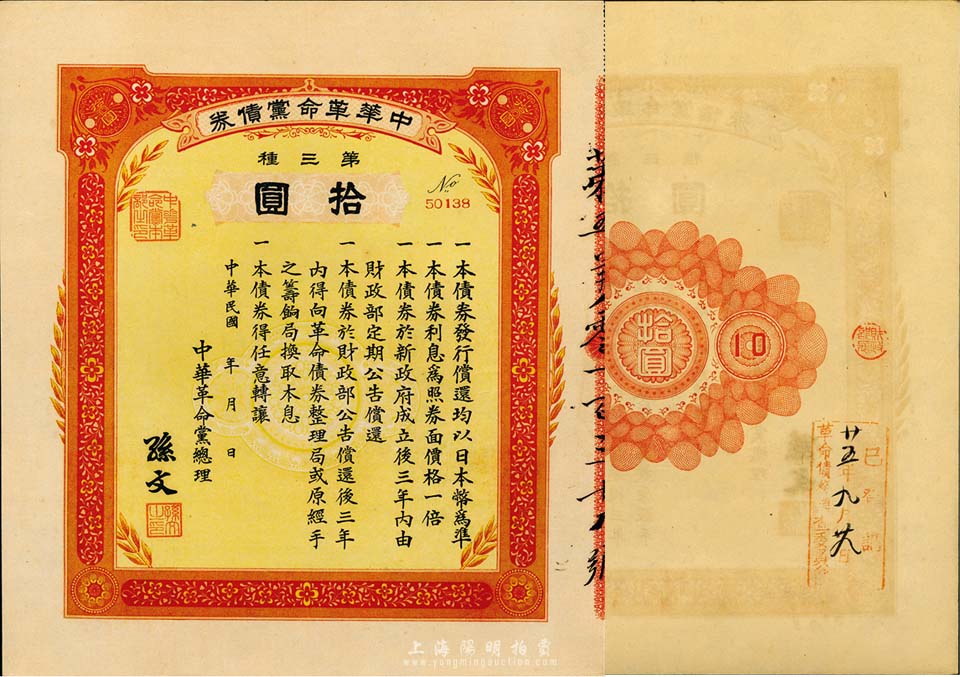 中華革命黨債券
第三種
拾圓
No 50138
一本債券發行償還均以日本幣爲準
一本債券利息爲照券面價格一倍
一本債券於新政府成立後三年內由
財政部定期公告償還
一本債券於財政部公告償還後三年
內得向革命債券整理局或原經手
之籌餉局換取本息
一本債券得任意轉讓
中華民國 年 月 日
中華革命黨總理
孫文
中華革命黨本部之印
孫文之印
拾圓
10
已登記
廿五年九月 日
革命債務
上海陽明拍賣
www.yangmingauction.com